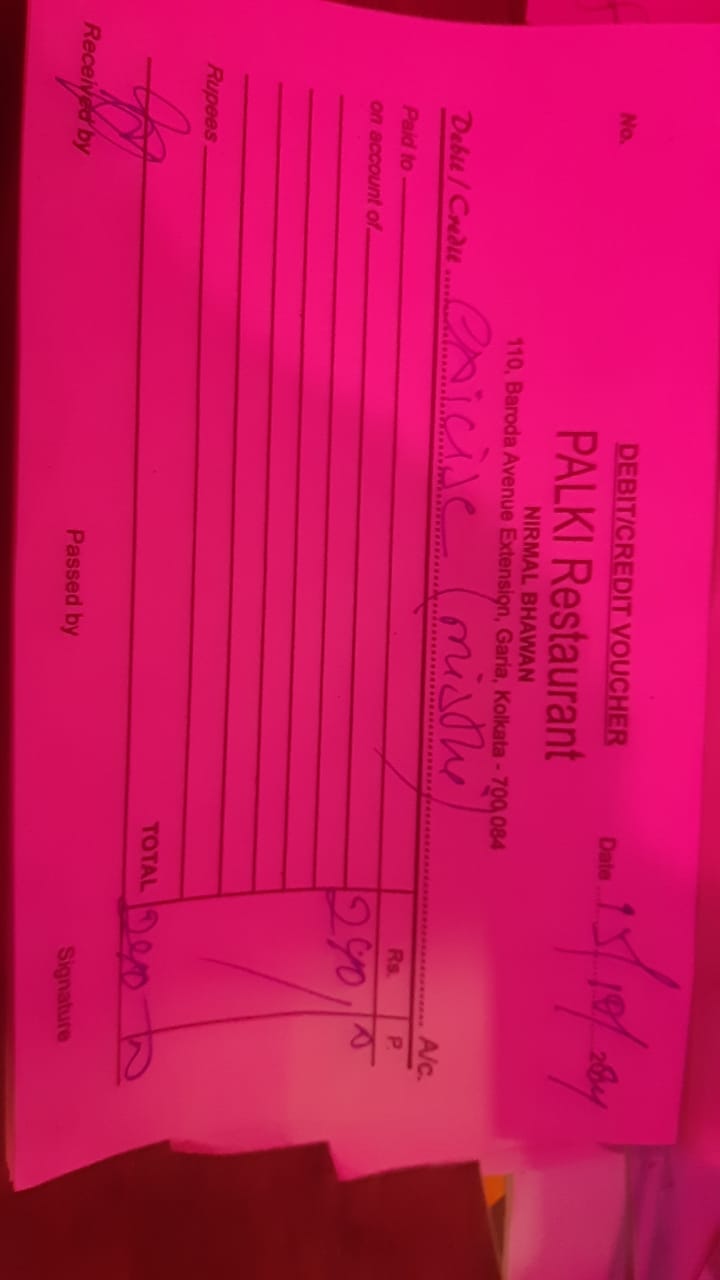 DEBIT/CREDIT VOUCHER
No. Date 15/10/2024
PALKI Restaurant
NIRMAL BHAWAN
110, Baroda Avenue Extension, Garia, Kolkata - 700 084
Debit / Credit (misthe) A/c.
Paid to Rs. P.
on account of
Rupees
TOTAL
Received by Passed by Signature